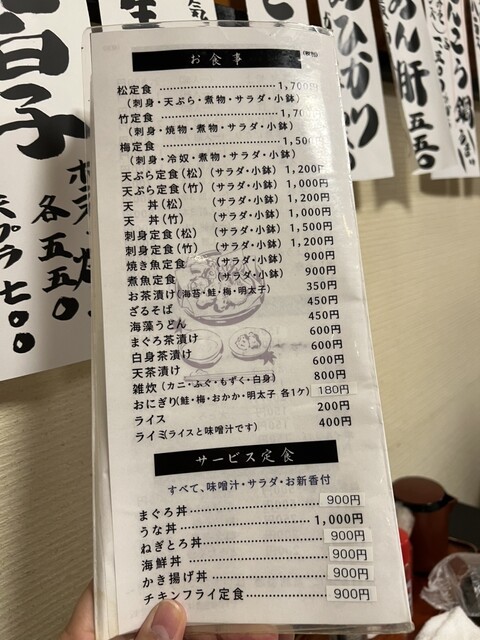 白子
各五五〇
天プラ七〇〇
あん肝
五五〇
お食事
松定食 1,700円
(刺身・天ぷら・煮物・サラダ・小鉢)
竹定食 1,70
(刺身・焼物・煮物・サラダ・小鉢)
梅定食 1,500
(刺身・冷奴・煮物・サラダ・小鉢)
天ぷら定食(松) (サラダ・小鉢) 1,200円
天ぷら定食(竹) (サラダ・小鉢) 1,000円
天 丼(松) (サラダ・小鉢) 1,200円
天 丼(竹) (サラダ・小鉢) 1,000円
刺身定食(松) (サラダ・小鉢) 1,500円
刺身定食(竹) (サラダ・小鉢) 1,200円
焼き魚定食 (サラダ・小鉢) 900円
煮魚定食 (サラダ・小鉢) 900円
お茶漬け(海苔・鮭・梅・明太子) 350円
ざるそば 450円
海藻うどん 450円
まぐろ茶漬け 600円
白身茶漬け 600円
天茶漬け 600円
雑炊(カニ・ふぐ・もずく・白身) 800円
おにぎり(鮭・梅・おかか・明太子 各1ケ) 180円
ライス 200円
ライミ(ライスと味噌汁です) 400円
サービス定食
すべて、味噌汁・サラダ・お新香付
まぐろ丼 900円
うな丼 1,000円
ねぎとろ丼 900円
海鮮丼 900円
かき揚げ丼 900円
チキンフライ定食 900円